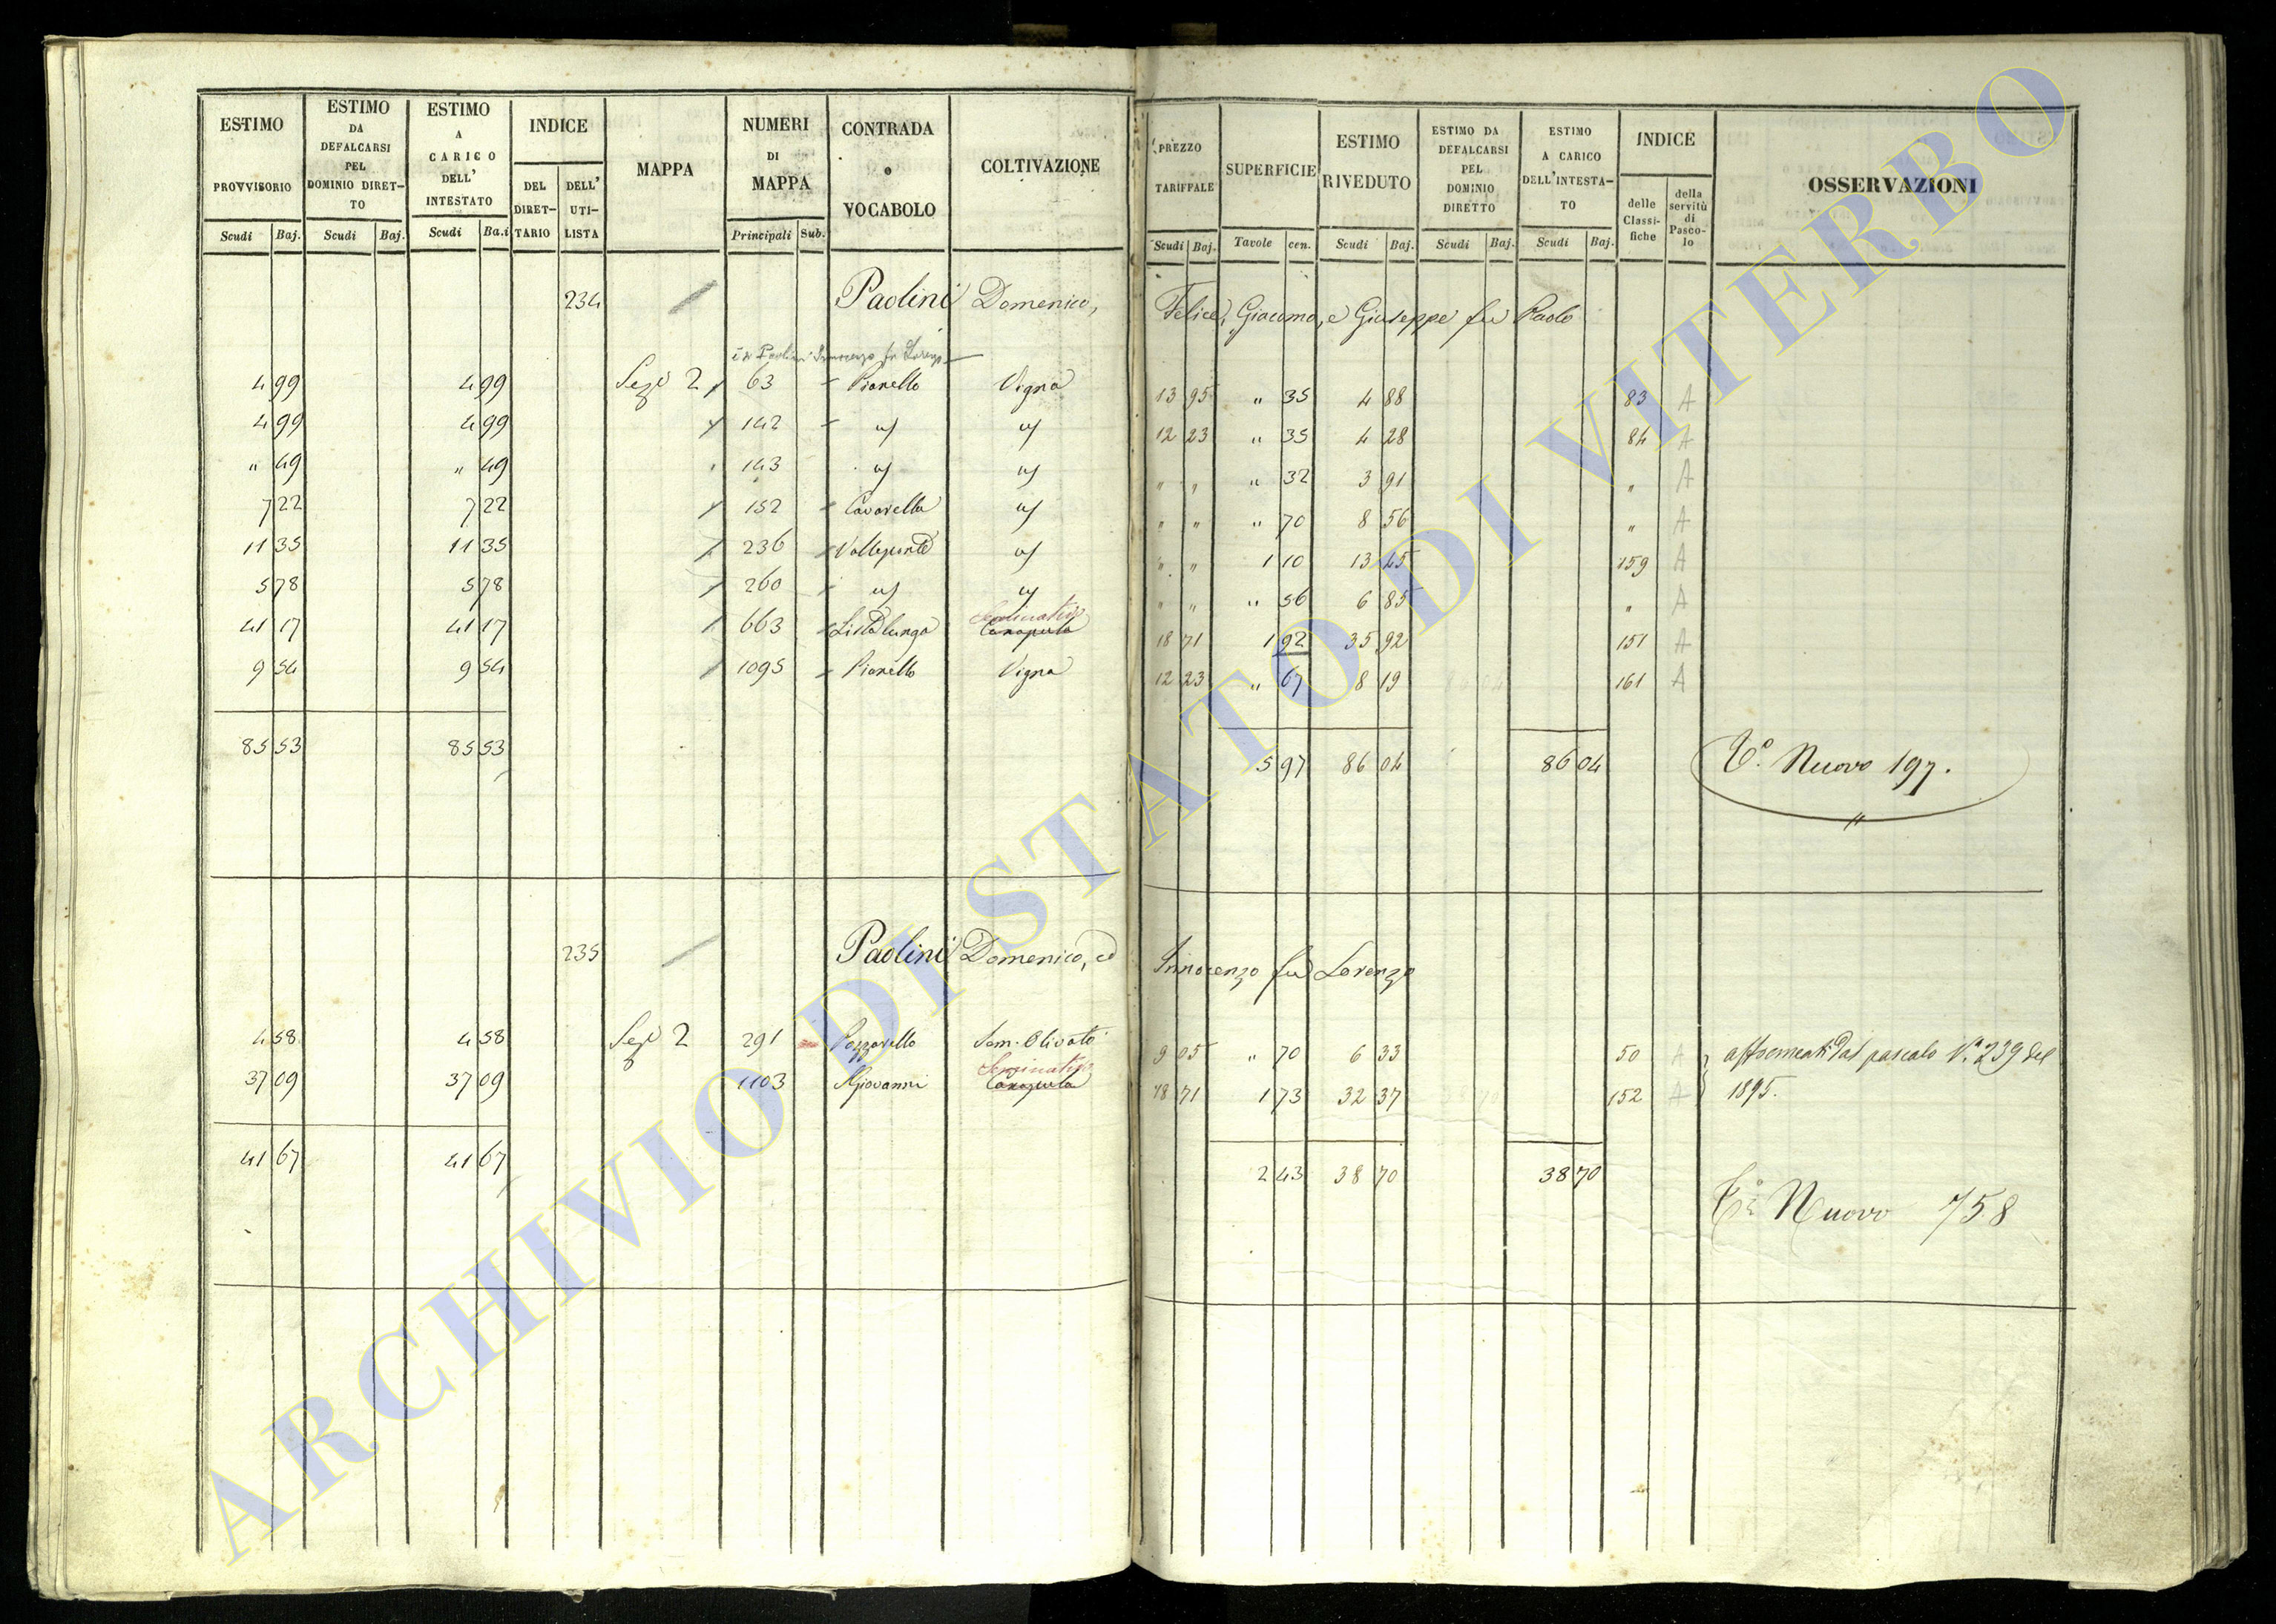 ESTIMO PROVVISORIO Scudi Baj.
ESTIMO DA DEFALCARSI PEL DOMINIO DIRETTO Scudi Baj.
ESTIMO A CARICO DELL' INTESTATO Scudi Ba.i
INDICE DEL DIRETTARIO DELL' UTILISTA
MAPPA
NUMERI DI MAPPA Principali Sub.
CONTRADA o VOCABOLO
COLTIVAZIONE
PREZZO TARIFFALE Scudi Baj.
SUPERFICIE Tavole cen.
ESTIMO RIVEDUTO Scudi Baj.
ESTIMO DA DEFALCARSI PEL DOMINIO DIRETTO Scudi Baj.
ESTIMO A CARICO DELL'INTESTATO Scudi Baj.
INDICE delle Classifiche della servitù di Pascolo
OSSERVAZIONI
234 Paolini Domenico, Felice, Giacomo, e Giuseppe fu Paolo
Paolini Innocenzo fu Lorenzo
4 99 4 99 Sez. 2 63 Pianello Vigna 13 95 " 35 4 88 83 A
4 99 4 99 142 12 23 " 35 4 28 84 A
" 49 " 49 143 " " " 32 3 91 " A
7 22 7 22 152 Cavarella " " " 70 8 56 " A
11 35 11 35 236 " " 1 10 13 45 159 A
5 78 5 78 260 " " " 56 6 85 " A
41 17 41 17 663 Lista lunga Seminativo Canapula 18 71 1 92 35 92 151 A
9 54 9 54 1095 Pianello Vigna 12 23 " 67 8 19 161 A
85 53 85 53 5 97 86 04 86 04 Nuovo 197.
235 Paolini Domenico, ed Innocenzo fu Lorenzo
4 58 4 58 Sez. 2 291 Pozzarello Sem. Olivato 9 05 " 70 6 33 50 A pascolo N.° 239 del
37 09 37 09 1103 Giovanni Seminativo Canapula 18 71 1 73 32 37 152 A 1895.
41 67 41 67 2 43 38 70 38 70
Nuovo 758
ARCHIVIO DI STATO DI VITERBO